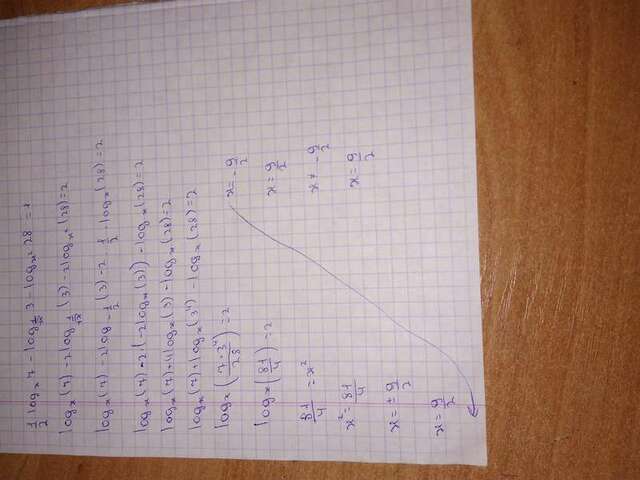 1/2 log_x 7 - log_{1/√x} 3 - log_{x²} 28 = 1
log_x (7) - 2 log_{1/√x} (3) - 2 log_{x²} (28) = 2
log_x (7) - 2 log - 1/2 (3) - 2 · 1/2 · log_x (28) = 2
log_x (7) - 2 (-2 log_x (3)) - log_x (28) = 2
log_x (7) + 4 log_x (3) - log_x (28) = 2
log_x (7) + log_x (3⁴) - log_x (28) = 2
log_x (7 · 3⁴ / 28) = 2
log_x (81/4) = 2
81/4 = x²
x² = 81/4
x = ± 9/2
x = 9/2
x = - 9/2
x = 9/2
x ≠ - 9/2
x = 9/2